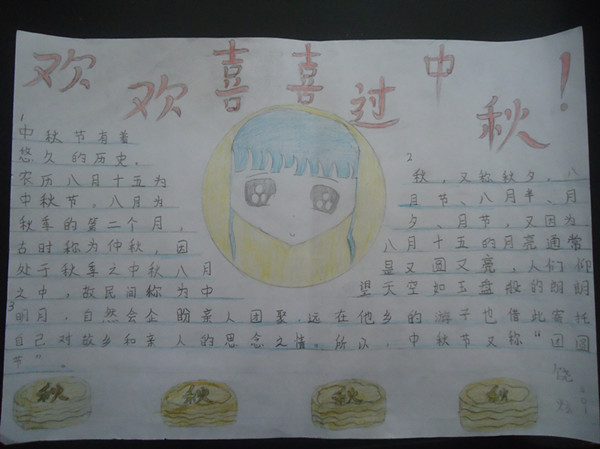 欢欢喜喜过中秋！
1
中秋节有着
悠久的历史。
农历八月十五为
中秋节。八月为
秋季的第二个月，
古时称为仲秋，因
处于秋季之中秋八月
之中，故民间称为中
2
秋，又称秋夕、八
月节、八月半、月
夕、月节，又因为
八月十五的月亮通常
显又圆又亮，人们仰
望天空如玉盘般的朗朗
3
明月，自然会企盼亲人团聚。远在他乡的游子也借此寄托
自己对故乡和亲人的思念之情。所以，中秋节又称“团圆
节”。
秋
秋
秋
秋